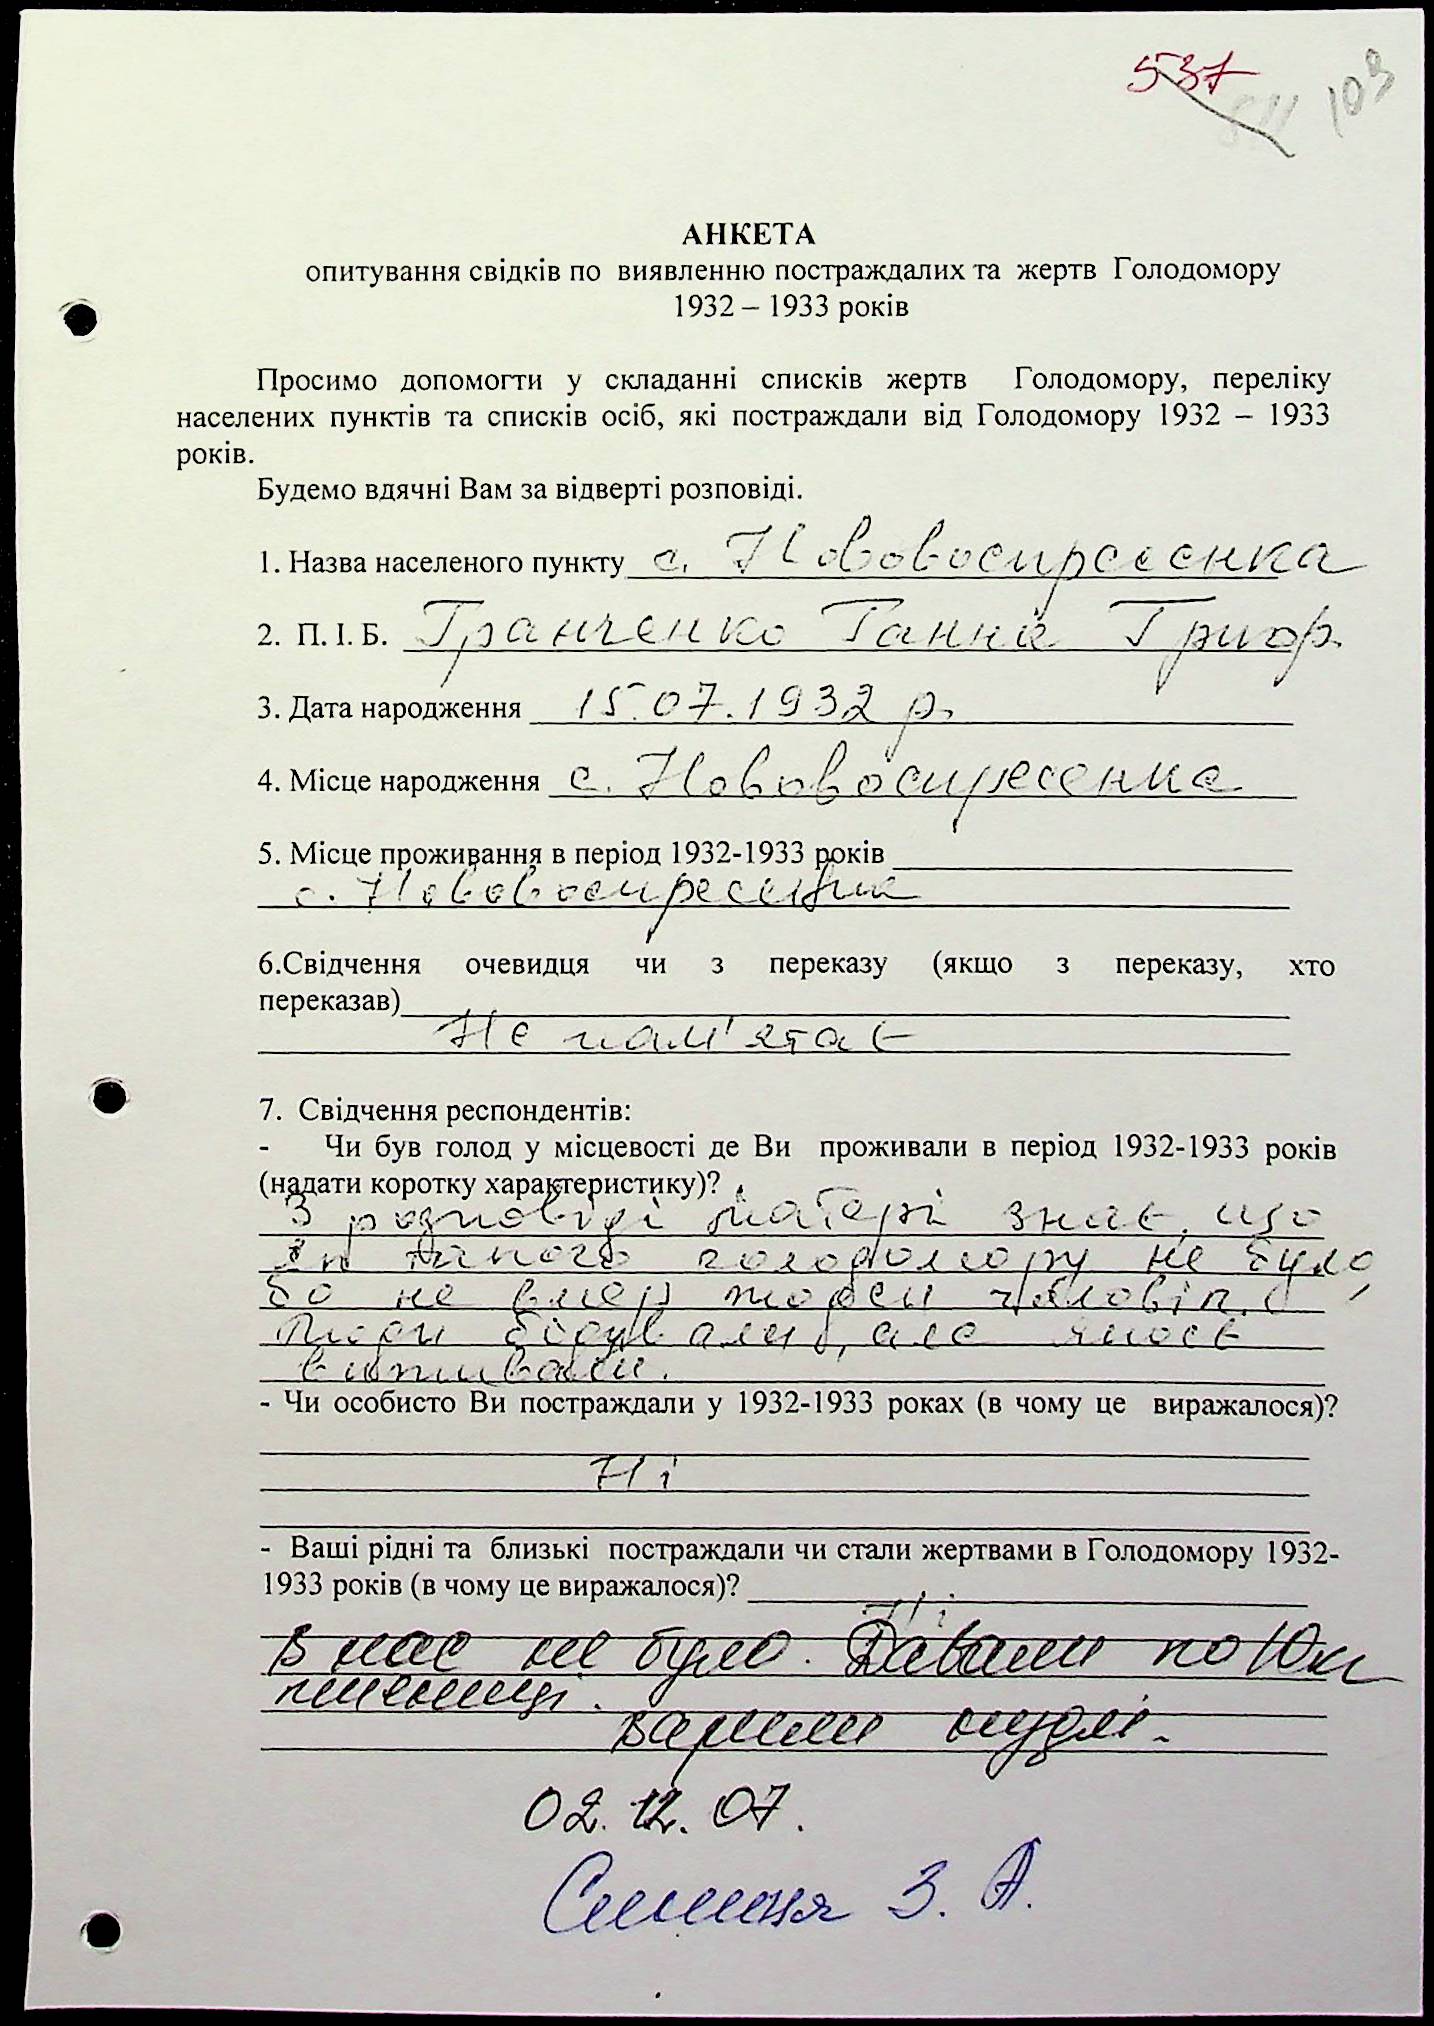 537 103
АНКЕТА
опитування свідків по виявленню постраждалих та жертв Голодомору
1932 – 1933 років
Просимо допомогти у складанні списків жертв Голодомору, переліку
населених пунктів та списків осіб, які постраждали від Голодомору 1932 – 1933
років.
Будемо вдячні Вам за відверті розповіді.
1. Назва населеного пункту с. Нововоскресенка
2. П. І. Б. Гранченко Ганна Григор.
3. Дата народження 15.07.1932 р.
4. Місце народження с. Нововоскресенка
5. Місце проживання в період 1932-1933 років
с. Нововоскресенка
6.Свідчення очевидця чи з переказу (якщо з переказу, хто
переказав)
Не пам'ятає
7. Свідчення респондентів:
- Чи був голод у місцевості де Ви проживали в період 1932-1933 років
(надати коротку характеристику)?
З розповіді матері знає, що
такого голодомору не було,
бо не вмер жоден чоловік.
Люди бідували, але якось
виживали.
- Чи особисто Ви постраждали у 1932-1933 роках (в чому це виражалося)?
Ні
- Ваші рідні та близькі постраждали чи стали жертвами в Голодомору 1932-
1933 років (в чому це виражалося)? Ні
В нас не було. Давали по 10 кг
пшениці.
Варили нудлі.
02.12.07.
З. А.